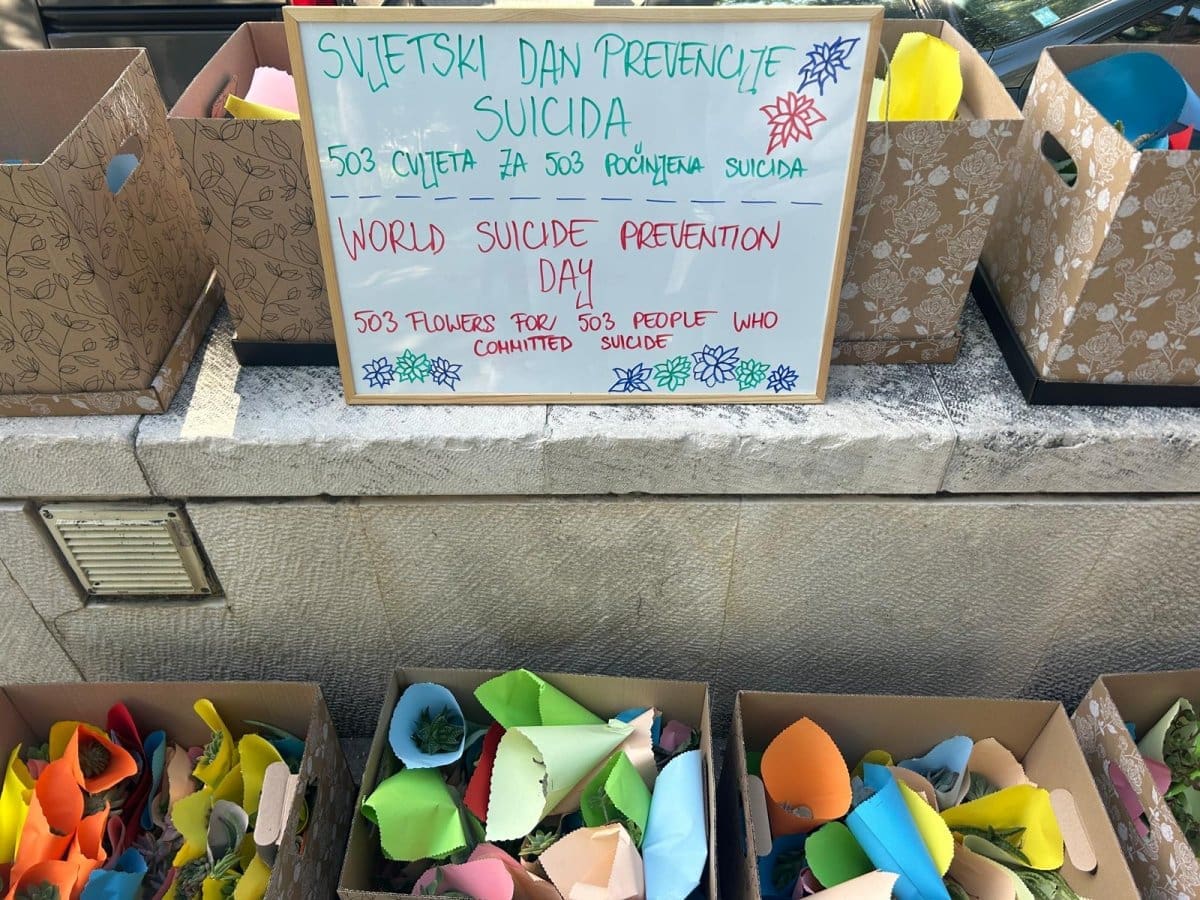 SVJETSKI DAN PREVENCIJE
SUICIDA
503 CVIJETA ZA 503 POČINJENA SUICIDA
WORLD SUICIDE PREVENTION
DAY
503 FLOWERS FOR 503 PEOPLE WHO
COMMITTED SUICIDE